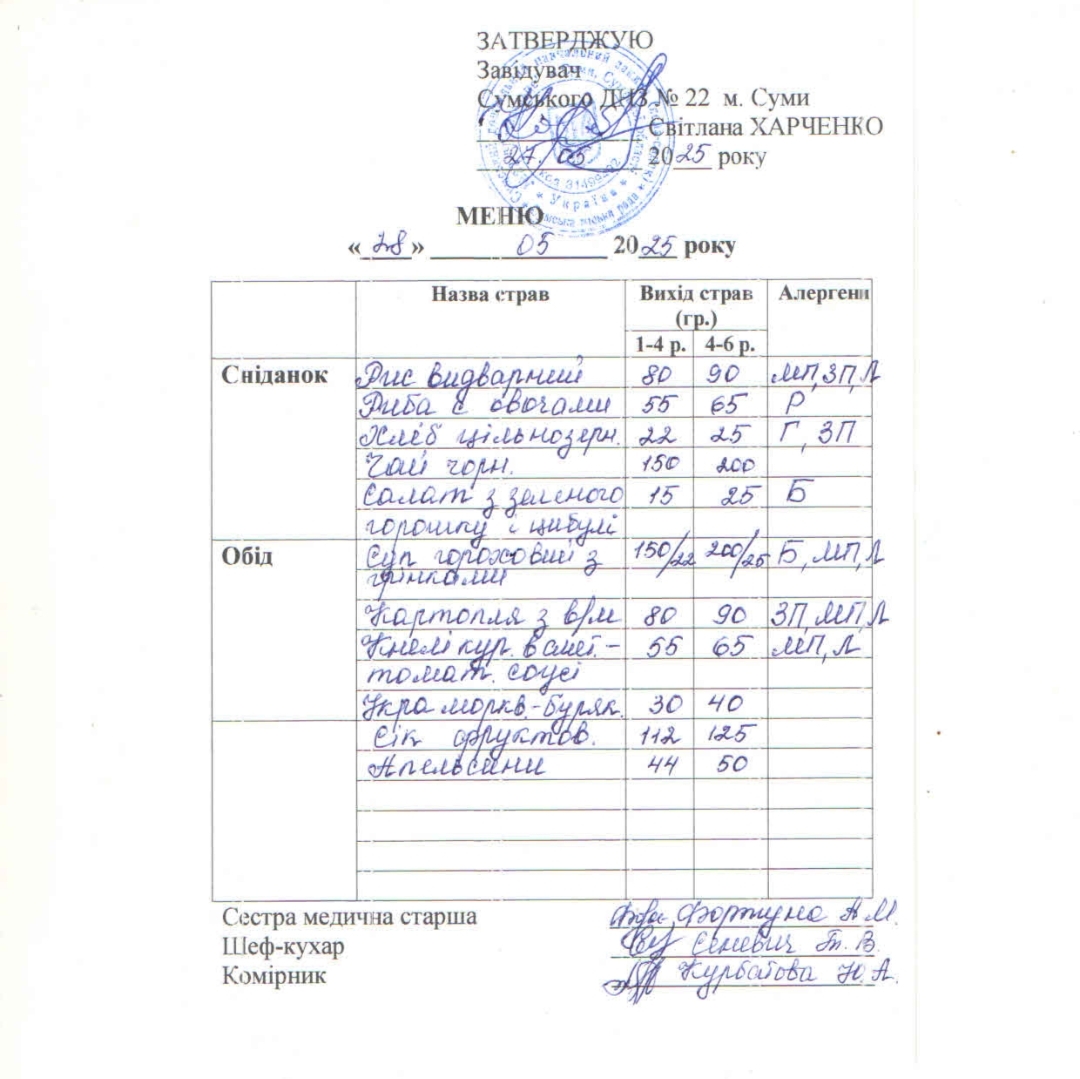 ЗАТВЕРДЖУЮ
Завідувач
Сумського ДНЗ № 22 м. Суми
Світлана ХАРЧЕНКО
27. 05 2025 року
МЕНЮ
« 28 » 05 2025 року
Назва страв Вихід страв (гр.) Алергени
1-4 р. 4-6 р.
Сніданок Рис видварний 80 90 МП,ЗП,Л
Риба с овочами 55 65 Р
Хліб цільнозерн. 22 25 Г, ЗП
Чай чорн. 150 200
Салат з зеленого 15 25 Б
горошку і цибулі
Обід Суп гороховий з 150/22 200/25 Б, МП,Л
грінками
Картопля з в/м 80 90 ЗП,МП,Л
Кнелі кур. в смет.- 55 65 МП,Л
томат. соусі
Ікра моркв.-буряк. 30 40
Сік фруктов. 112 125
Апельсини 44 50
Сестра медична старша Фортуна А.М.
Шеф-кухар Сеневич Т. В.
Комірник Курбатова Ю.А.